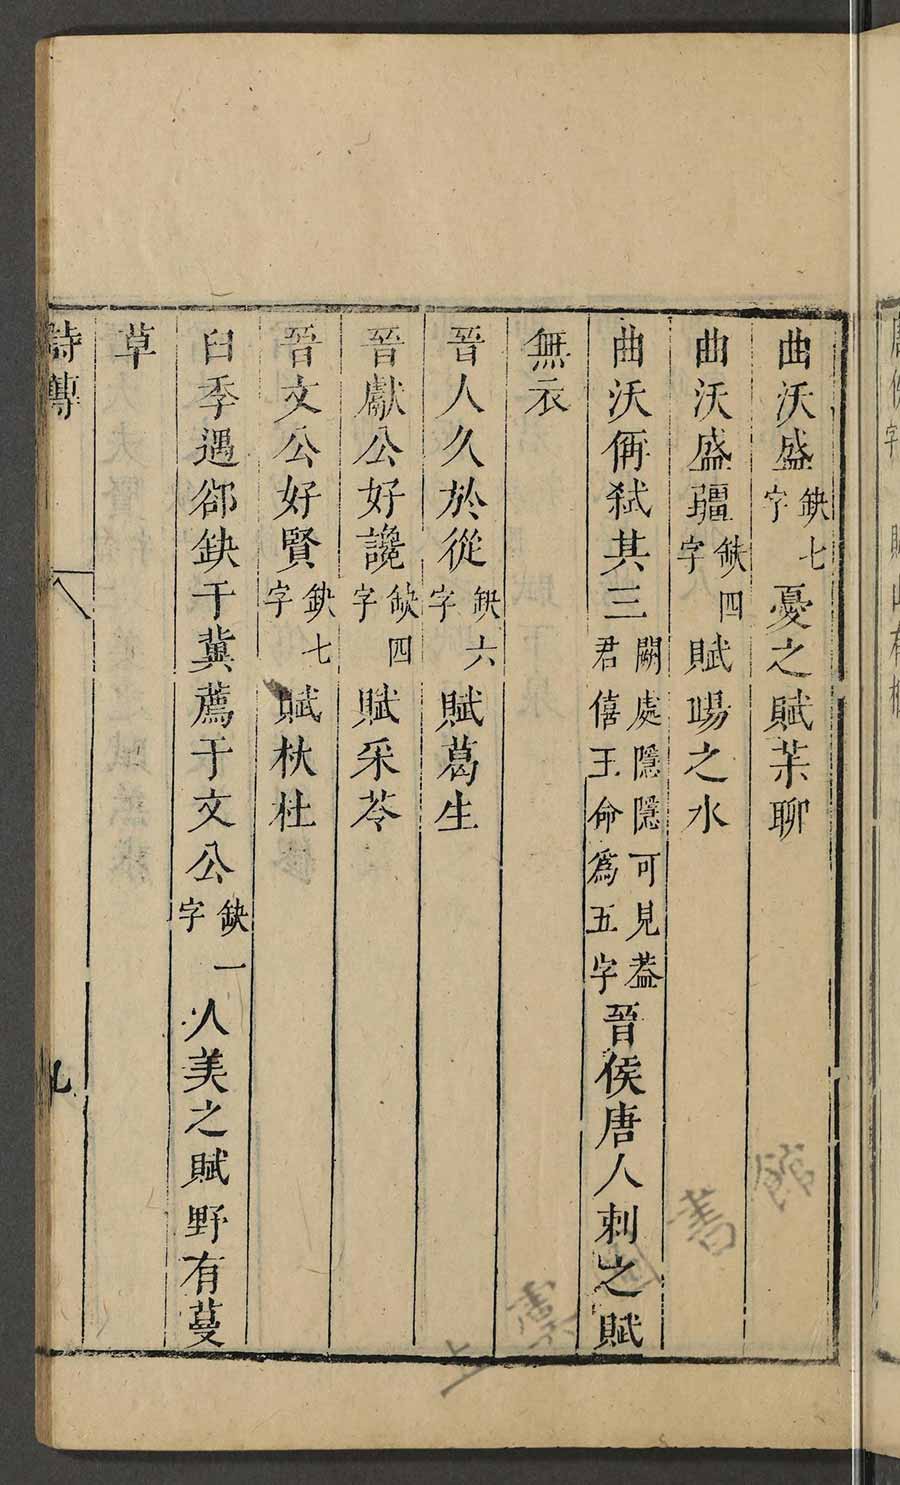 曲沃盛缺七字憂之賦茮聊
曲沃盛疆缺四字賦昜之水
曲沃侢弑其三闕處隱隱可見葢君僖王命爲五字晉侯唐人刺之賦
無衣
晉人久於從缺六字賦葛生
晉獻公好讒缺四字賦采苓
晉文公好賢缺七字賦杕杜
臼季遇郤缺于兾薦于文公缺一字人美之賦野有蔓
草
詩傳
九